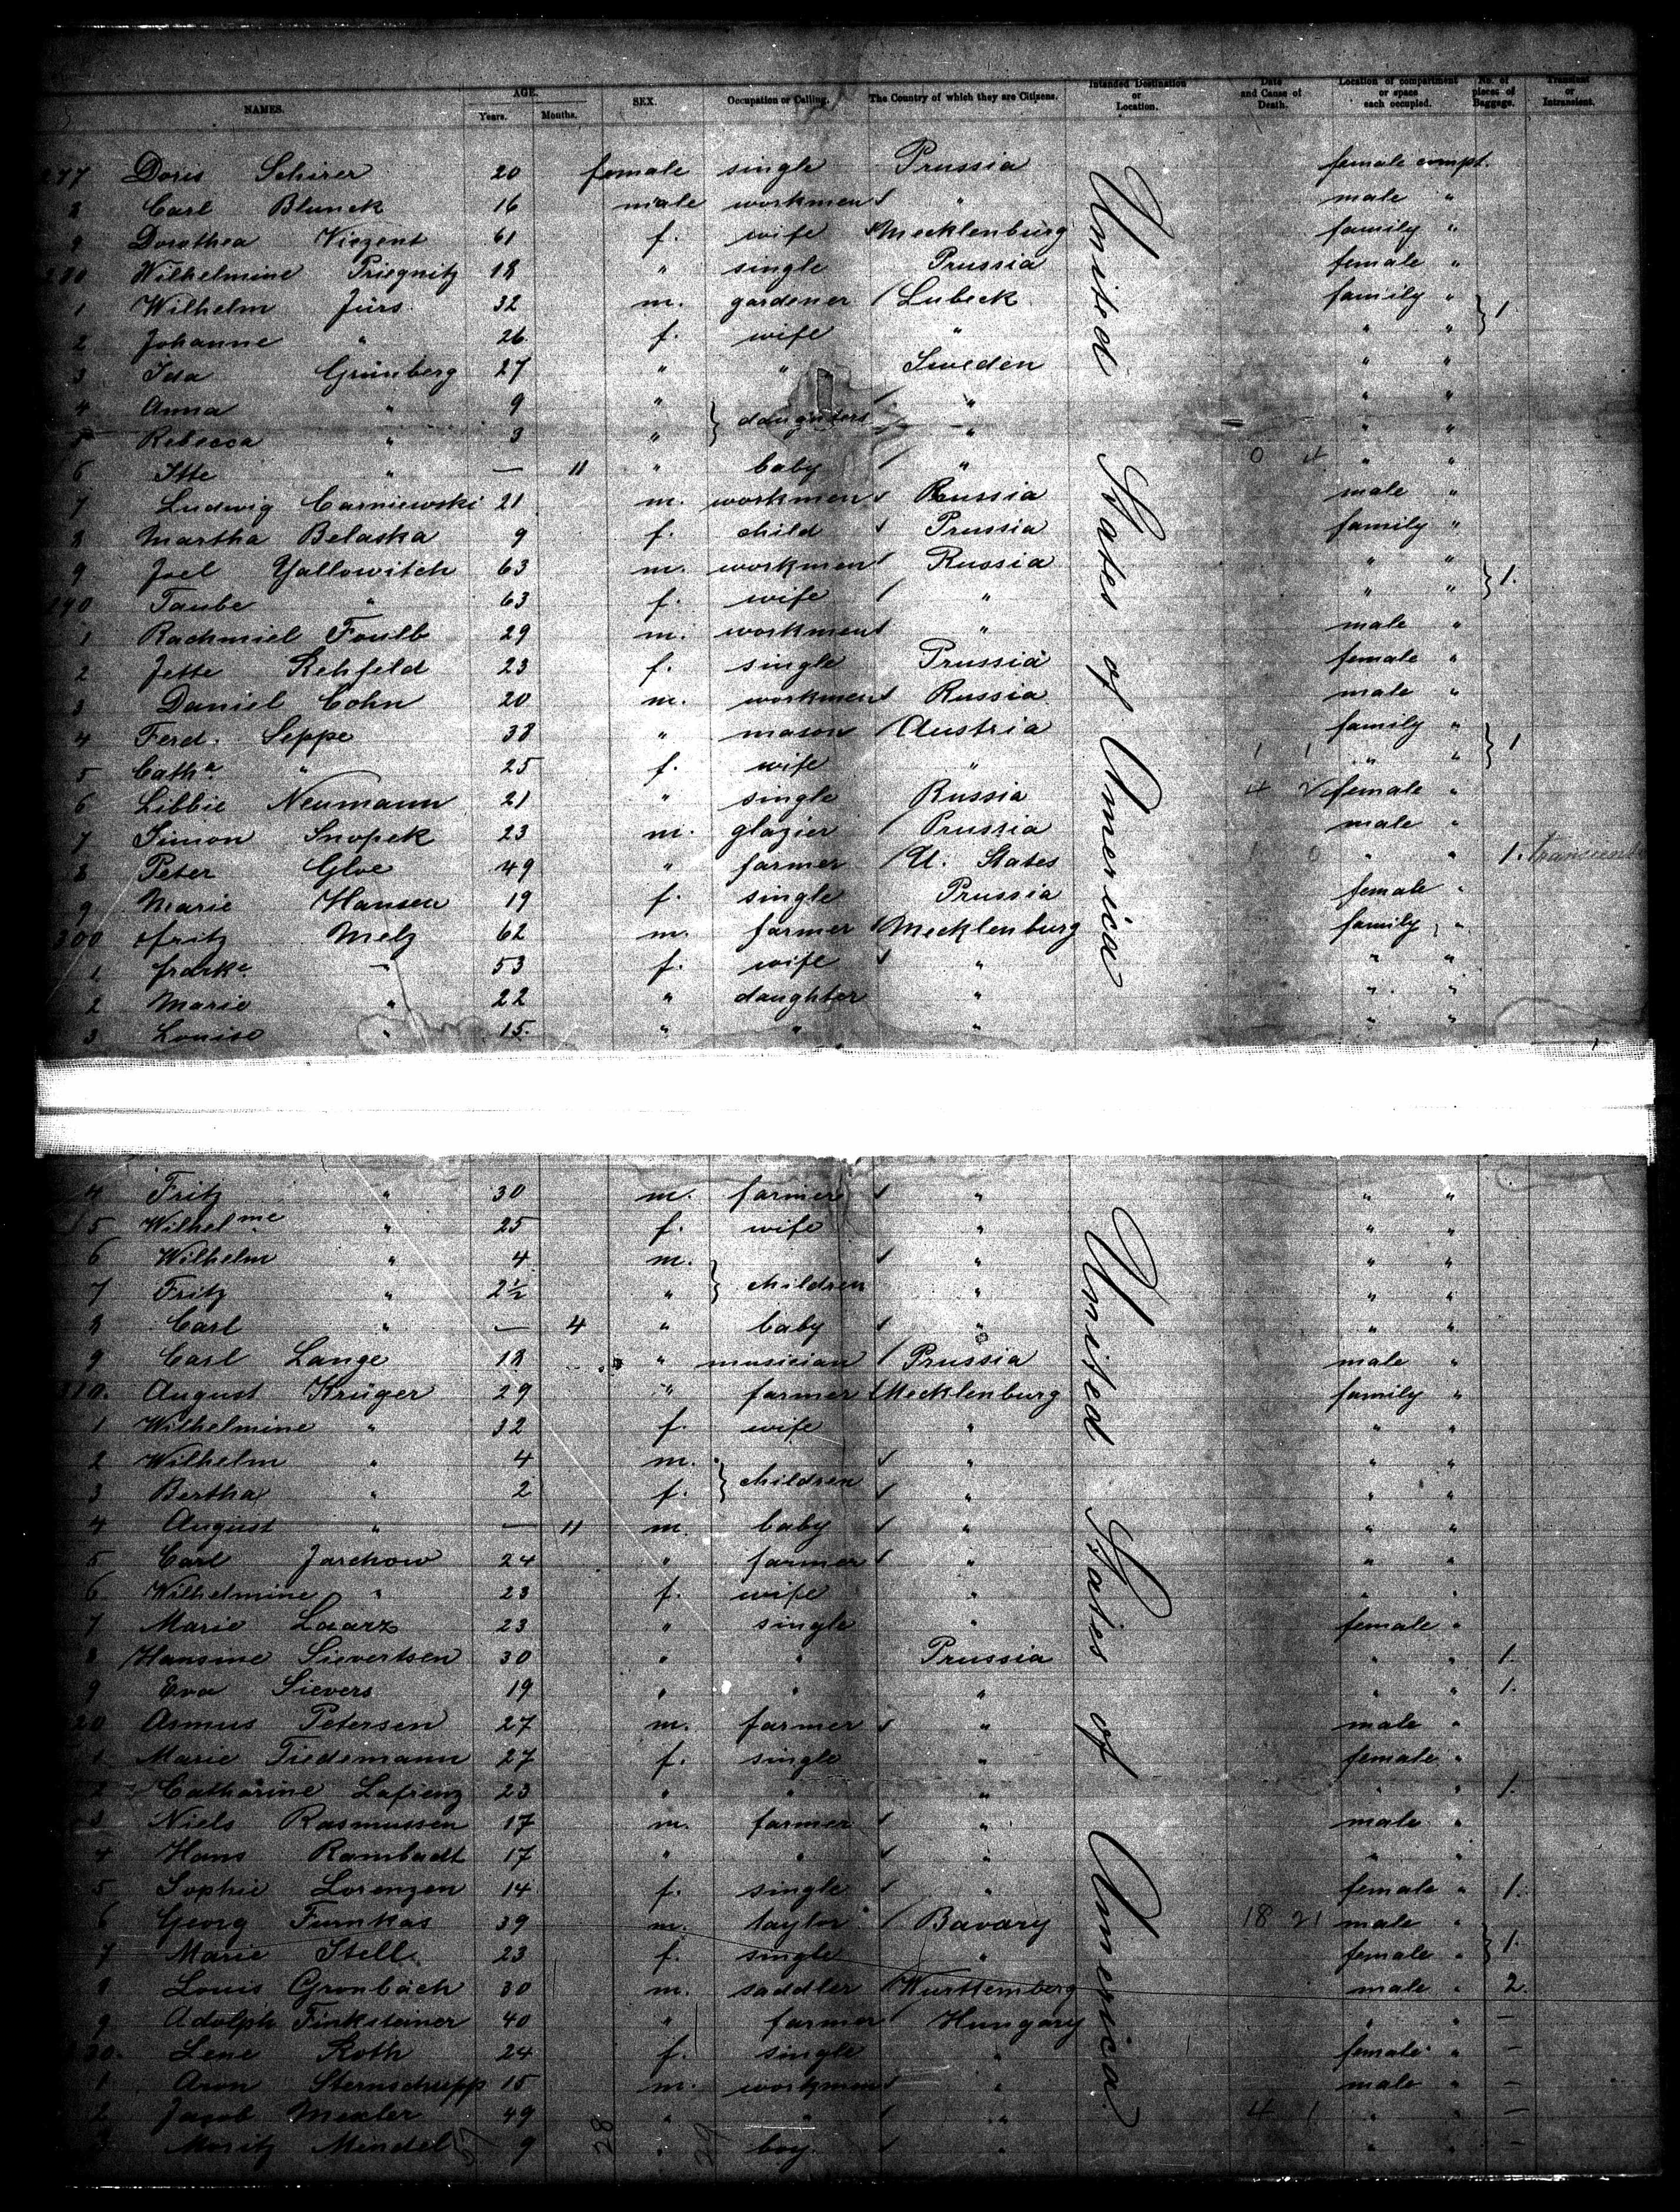 NAMES. AGE. Years. Months. SEX. Occupation or Calling. The Country of which they are Citizens. Intended Destination or Location. Date and Cause of Death. Location of compartment or space each occupied. No. of pieces of Baggage. Transient or Intransient.
277 Doris Schirer 20 female single Prussia female compt.
8 Carl Blunck 16 male workmen " male "
9 Dorothea Viezent 61 f. wife Mecklenburg family "
280 Wilhelmine Priegnitz 18 " single Prussia female "
1 Wilhelm Jürs 32 m. gardener Lubeck family " } 1.
2 Johanne " 26 f. wife " " "
3 Ida Grünberg 27 " " Sweden " "
4 Anna " 9 " } daughters " " "
5 Rebecca " 3 " " " "
6 Itte " — 11 " baby " 0 4 " "
7 Ludwig Carniewski 21 m. workmen Russia male "
8 Martha Belaska 9 f. child Prussia family "
9 Joel Yallowitch 63 m. workmen Russia " " } 1.
290 Taube " 63 f. wife " " "
1 Rachmiel Foulb 29 m. workmen " male "
2 Jette Rehfeld 23 f. single Prussia female "
3 Daniel Cohn 20 m. workmen Russia male "
4 Ferd. Seppe 38 " mason Austria family " } 1
5 Catha " 25 f. wife " 1 1 " "
6 Libbie Neumann 21 " single Russia 4 2 female "
7 Simon Snopek 23 m. glazier Prussia male "
8 Peter Gloe 49 " farmer U. States 1 0 " " 1.
9 Marie Hansen 19 f. single Prussia female "
300 Fritz Melz 62 m. farmer Mecklenburg family "
1 " 53 f. wife " " "
2 Marie " 22 " daughter " " "
3 Louise " 15. " " " " "
United States of America
4 Fritz " 30 m. farmer " " "
5 Wilhelme " 25 f. wife " " "
6 Wilhelm " 4 m. } children " " "
7 Fritz " 2½ " " " "
8 Carl " — 4 " baby " " "
9 Carl Lange 18 " musician Prussia male "
310. August Krüger 29 " farmer Mecklenburg family "
1 Wilhelmine " 32 f. wife " " "
2 Wilhelm " 4 m. } children " " "
3 Bertha " 2 f. " " "
4 August " — 11 m. baby " " "
5 Carl Jarchow 24 " farmer " " "
6 Wilhelmine " 23 f. wife " " "
7 Marie Laarz 23 " single " female "
8 Hansine Sievertsen 30 " " Prussia " " 1.
9 Eva Sievers 19 " " " " " 1.
20 Asmus Petersen 27 m. farmer " male "
1 Marie Tiedemann 27 f. single " female "
2 Catharine Lafrenz 23 " " " " " 1.
3 Niels Rasmussen 17 m. farmer " male "
4 Hans Rambadt 17 " " " " "
5 Sophie Lorenzen 14 f. single " female " 1.
6 Georg Funkas 39 m. taylor Bavary 18 21 male " } 1.
7 Marie Stell 23 f. single " female "
8 Louis Gronbach 30 m. saddler Wurttemberg male " 2.
9 Adolph Finksteiner 40 " farmer Hungary " " —
330. Lene Roth 24 f. single " female " —
1 Aron Sternschupp 15 m. workmen " male " —
2 Jacob Mexler 49 " " " 4 1 " " —
3 Moritz Mindel 9 " boy " " " —
United States of America
57 28 29